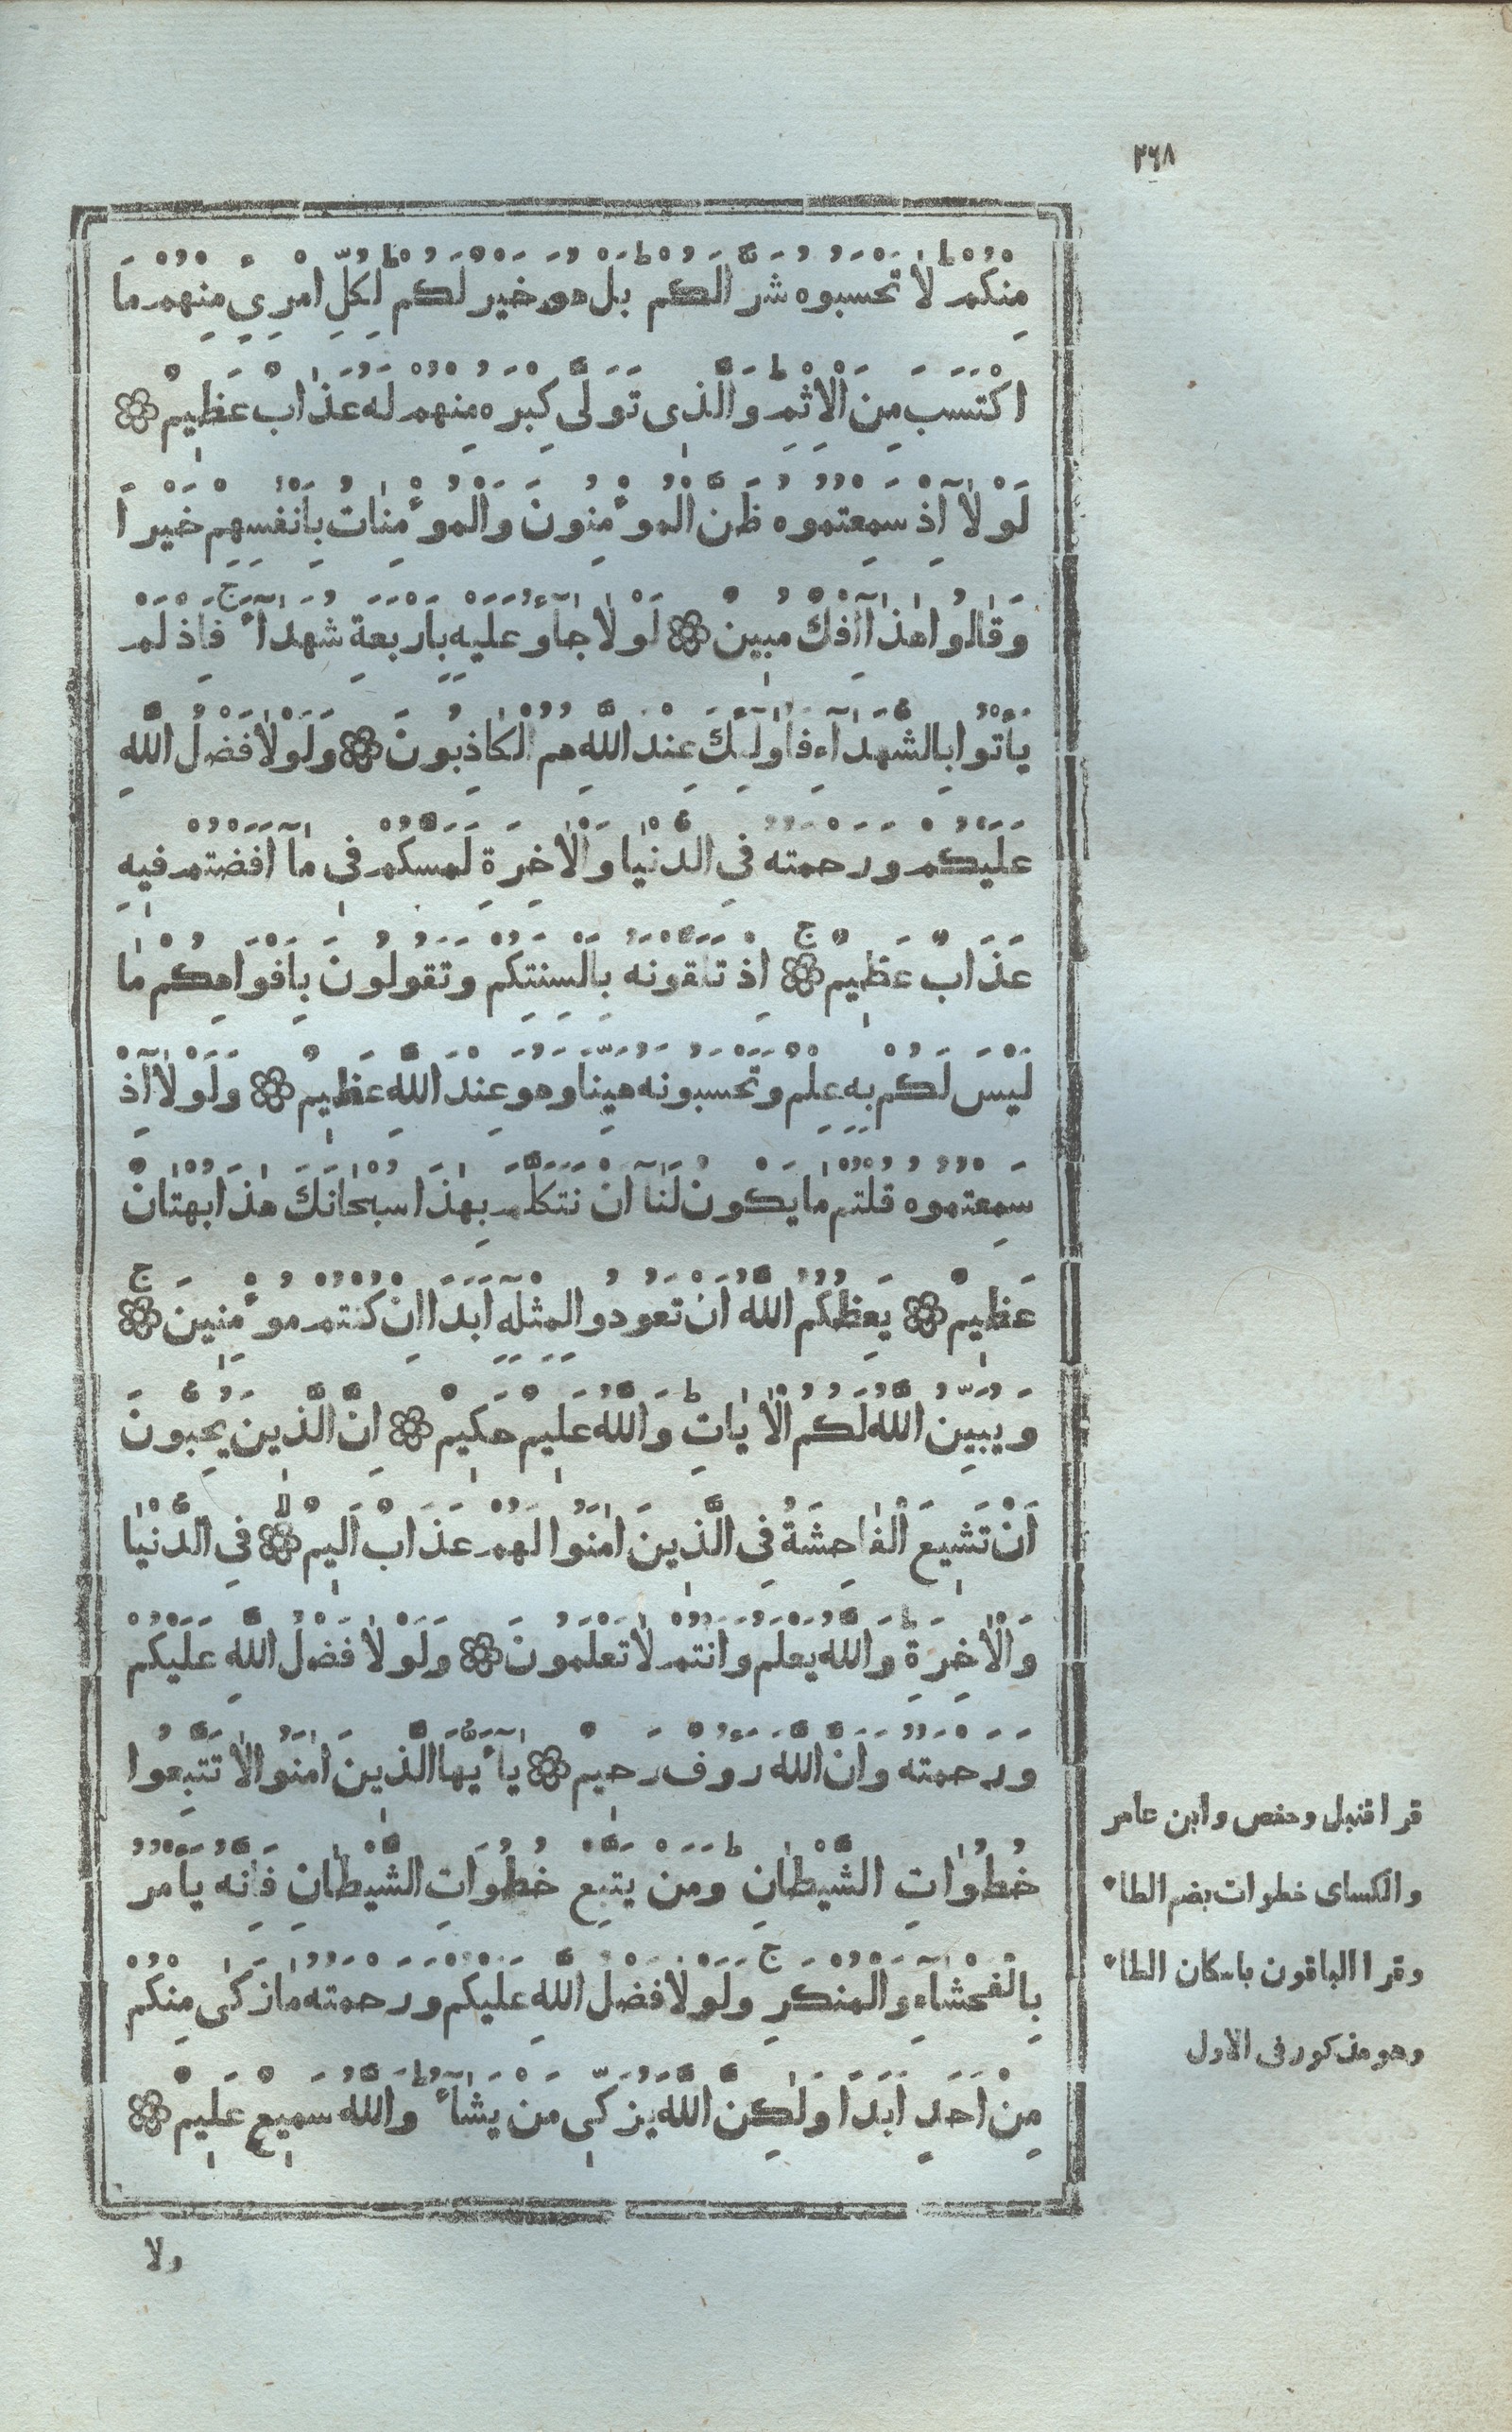 ٢٦٨
مِنْكُمْ ۖ لَا تَحْسَبُوهُ شَرًّا لَكُمْ ۖ بَلْ هُوَ خَيْرٌ لَكُمْ ۖ لِكُلِّ امْرِئٍ مِنْهُمْ مَا
اكْتَسَبَ مِنَ الْاِثْمِ ۚ وَالَّذِى تَوَلَّى كِبْرَهُ مِنْهُمْ لَهُ عَذَابٌ عَظِيمٌ
لَوْلَآ اِذْ سَمِعْتُمُوهُ ظَنَّ الْمُؤْمِنُونَ وَالْمُؤْمِنَاتُ بِاَنْفُسِهِمْ خَيْرًا
وَقَالُوا هٰذَآ اِفْكٌ مُبِينٌ لَوْلَا جَآؤُ عَلَيْهِ بِاَرْبَعَةِ شُهَدَآءَ ج فَاِذْ لَمْ
يَأْتُوا بِالشُّهَدَآءِ فَاُولٰٓئِكَ عِنْدَ اللّٰهِ هُمُ الْكَاذِبُونَ وَلَوْلَا فَضْلُ اللّٰهِ
عَلَيْكُمْ وَرَحْمَتُهُ فِى الدُّنْيَا وَالْاٰخِرَةِ لَمَسَّكُمْ فِى مَآ اَفَضْتُمْ فِيهِ
عَذَابٌ عَظِيمٌ ج اِذْ تَلَقَّوْنَهُ بِاَلْسِنَتِكُمْ وَتَقُولُونَ بِاَفْوَاهِكُمْ مَا
لَيْسَ لَكُمْ بِهِ عِلْمٌ وَتَحْسَبُونَهُ هَيِّنًا وَهُوَ عِنْدَ اللّٰهِ عَظِيمٌ وَلَوْلَآ اِذْ
سَمِعْتُمُوهُ قُلْتُمْ مَا يَكُونُ لَنَآ اَنْ نَتَكَلَّمَ بِهٰذَا سُبْحَانَكَ هٰذَا بُهْتَانٌ
عَظِيمٌ يَعِظُكُمُ اللّٰهُ اَنْ تَعُودُوا لِمِثْلِهِٓ اَبَدًا اِنْ كُنْتُمْ مُؤْمِنِينَ ج
وَيُبَيِّنُ اللّٰهُ لَكُمُ الْاٰيَاتِ ط وَاللّٰهُ عَلِيمٌ حَكِيمٌ اِنَّ الَّذِينَ يُحِبُّونَ
اَنْ تَشِيعَ الْفَاحِشَةُ فِى الَّذِينَ اٰمَنُوا لَهُمْ عَذَابٌ اَلِيمٌ لا فِى الدُّنْيَا
وَالْاٰخِرَةِ ط وَاللّٰهُ يَعْلَمُ وَاَنْتُمْ لَا تَعْلَمُونَ وَلَوْلَا فَضْلُ اللّٰهِ عَلَيْكُمْ
وَرَحْمَتُهُ وَاَنَّ اللّٰهَ رَؤُفٌ رَحِيمٌ يَآ أَيُّهَا الَّذِينَ اٰمَنُوا لَا تَتَّبِعُوا
خُطُوَاتِ الشَّيْطَانِ ط وَمَنْ يَتَّبِعْ خُطُوَاتِ الشَّيْطَانِ فَاِنَّهُ يَأْمُرُ
بِالْفَحْشَآءِ وَالْمُنْكَرِ ج وَلَوْلَا فَضْلُ اللّٰهِ عَلَيْكُمْ وَرَحْمَتُهُ مَا زَكٰى مِنْكُمْ
مِنْ اَحَدٍ اَبَدًا وَلٰكِنَّ اللّٰهَ يُزَكِّى مَنْ يَشَآءُ ط وَاللّٰهُ سَمِيعٌ عَلِيمٌ
ولا
قرا قنبل وحفص وابن عامر
والكساى خطوات بضم الطاء
وقرا الباقون باسكان الطاء
وهو مذكور فى الاول